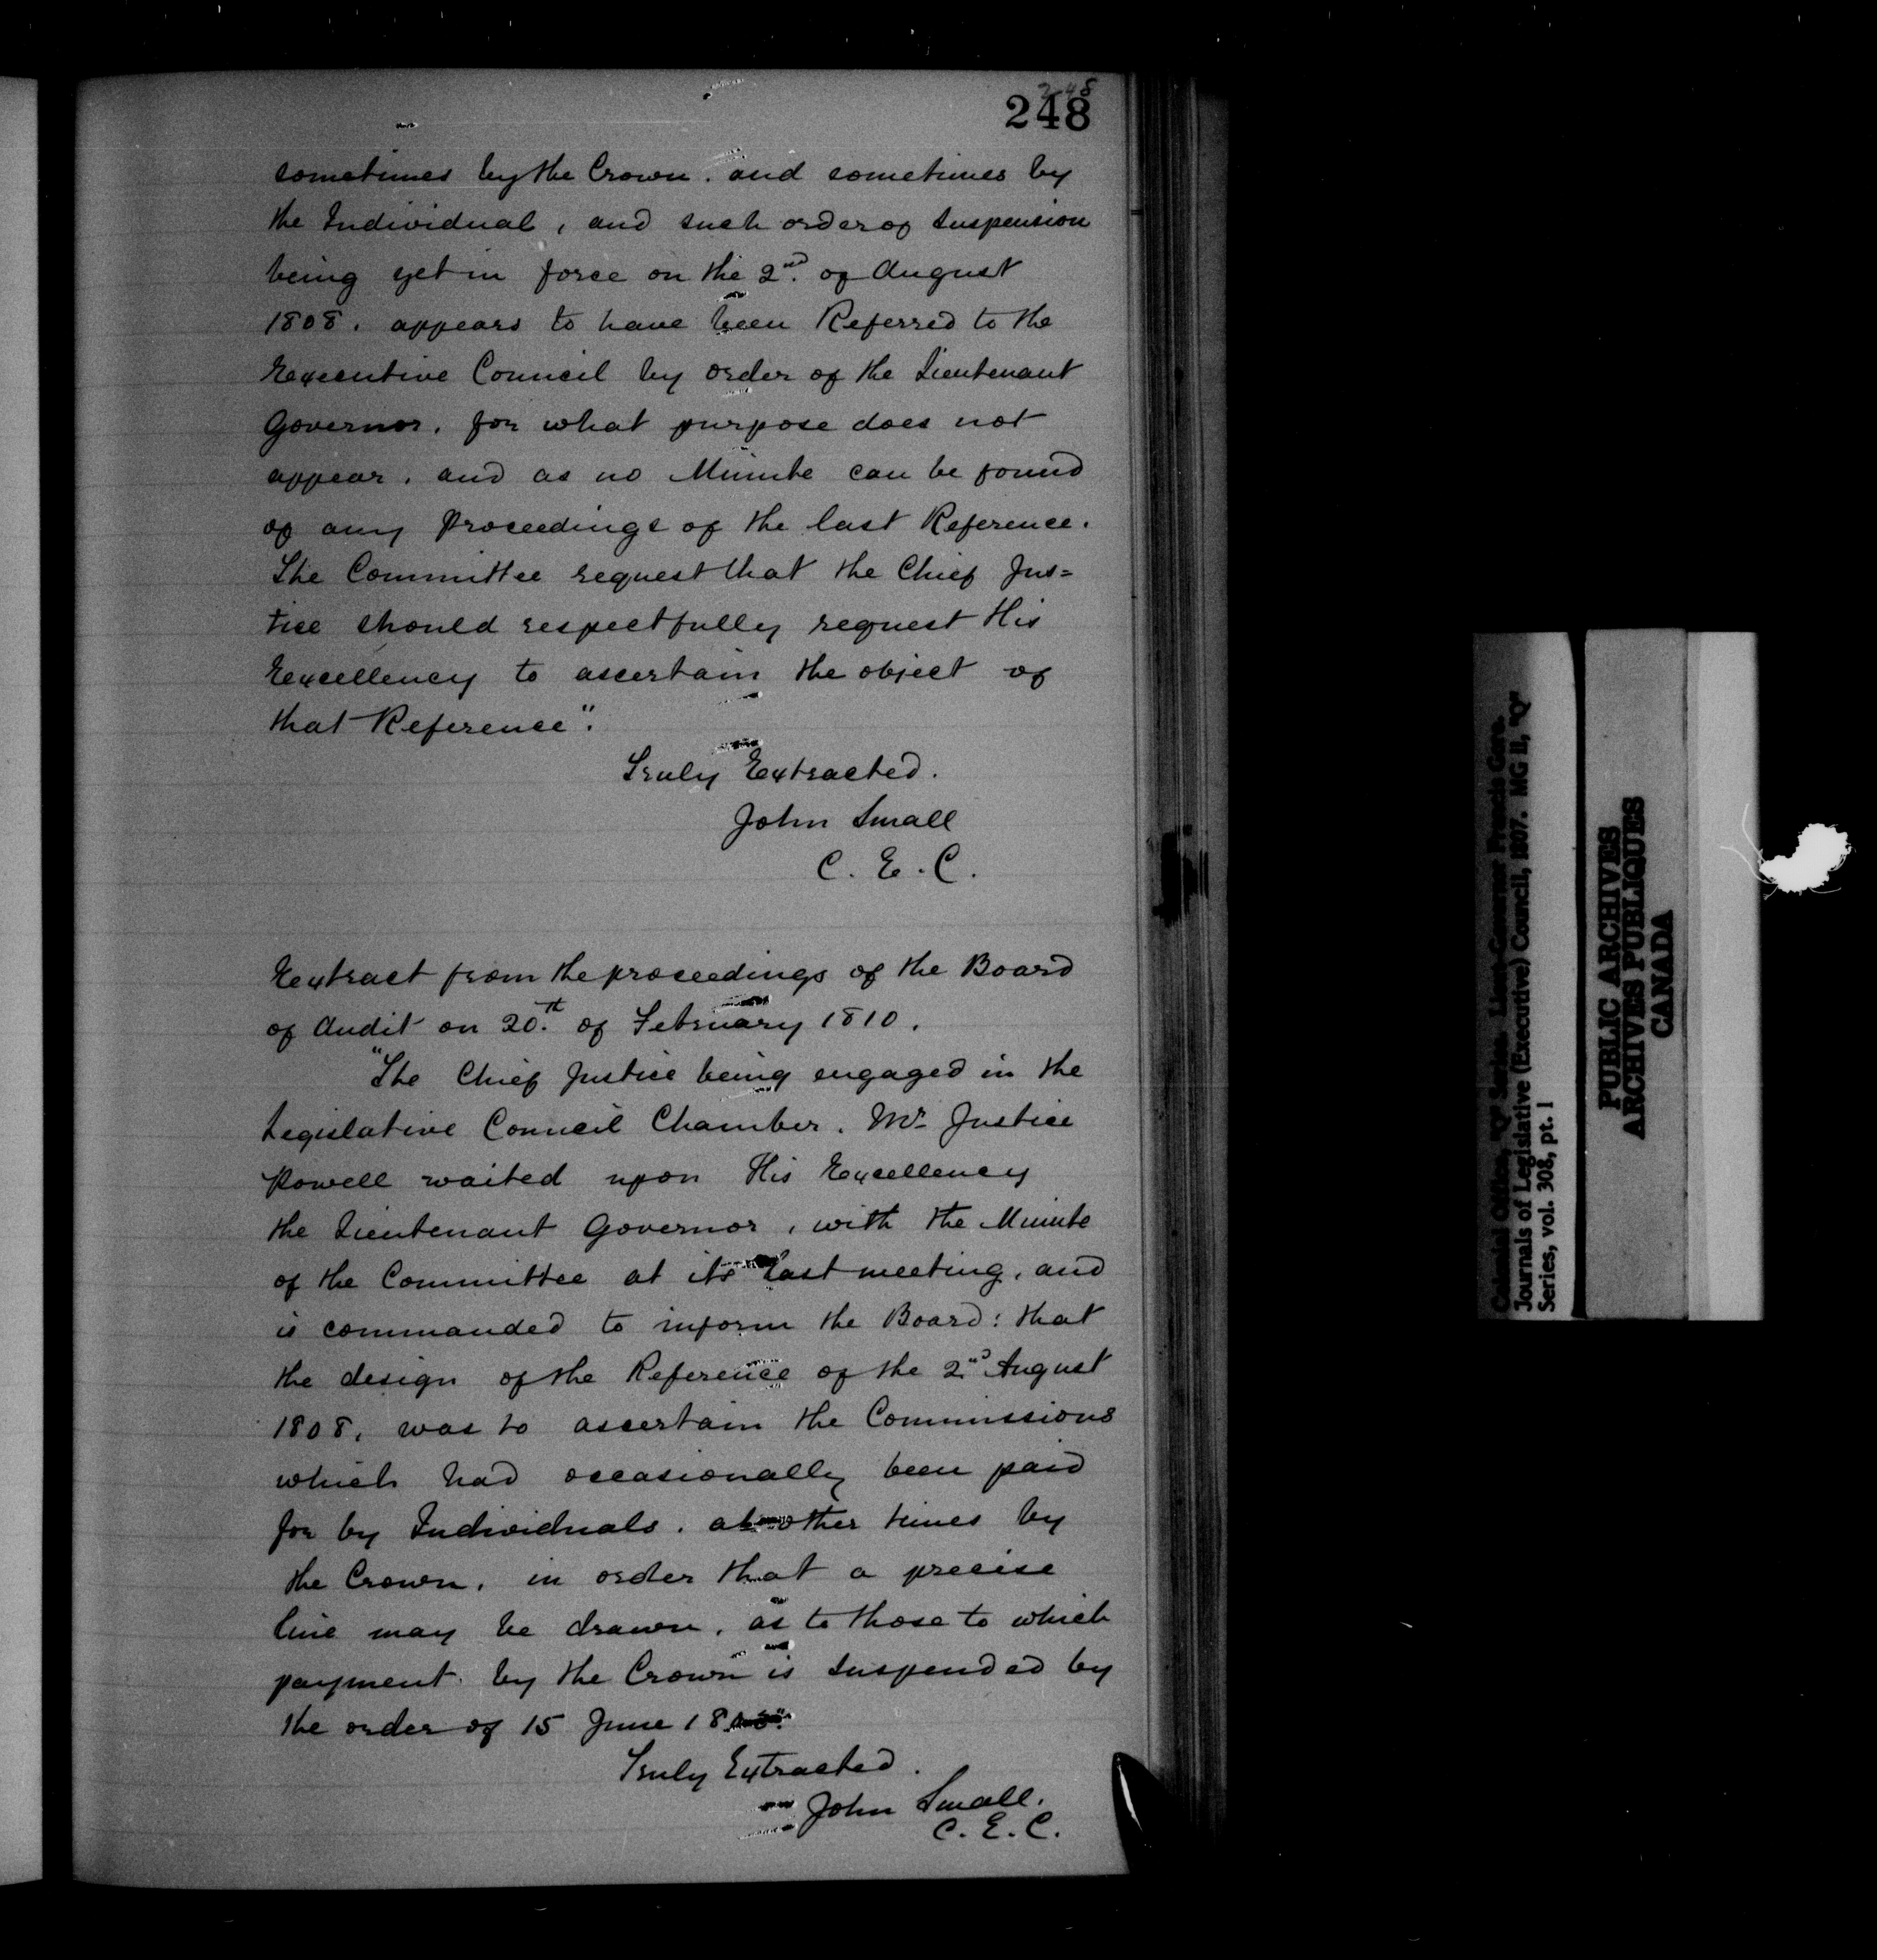 248
248
sometimes by the Crown. and sometimes by
the Individual, and such order of Suspension
being yet in force on the 2nd. of August
1808. appears to have been Referred to the
Executive Council by order of the Lieutenant
Governor. for what purpose does not
appear. and as no Minute can be found
of any Proceedings of the last Reference.
The Committee request that the Chief Jus=
tice should respectfully request His
Excellency to ascertain the object of
that Reference".
Truly Extracted.
John Small
C. E. C.
Extract from the proceedings of the Board
of Audit on 20.th of February 1810.
"The Chief Justice being engaged in the
Legislative Council Chamber. Mr. Justice
Powell waited upon His Excellency
the Lieutenant Governor, with the Minute
of the Committee at its last meeting, and
is commanded to inform the Board: that
the design of the Reference of the 2nd August
1808, was to ascertain the Commissions
which had occasionally been paid
for by Individuals. at other times by
the Crown. in order that a precise
line may be drawn, as to those to which
payment by the Crown is Suspended by
the order of 15 June 18
Truly Extracted.
John Small.
C. E. C.
Colonial Office, "Q" Series. Lieut-Governor Francis Gore.
Journals of Legislative (Executive) Council, 1807. MG 11, "Q"
Series, vol. 308, pt. 1
PUBLIC ARCHIVES
ARCHIVES PUBLIQUES
CANADA